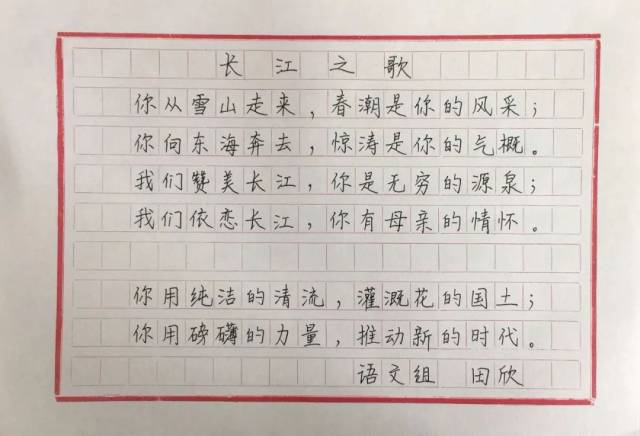 长江之歌
你从雪山走来，春潮是你的风采；
你向东海奔去，惊涛是你的气概。
我们赞美长江，你是无穷的源泉；
我们依恋长江，你有母亲的情怀。
你用纯洁的清流，灌溉花的国土；
你用磅礴的力量，推动新的时代。
语文组 田欣